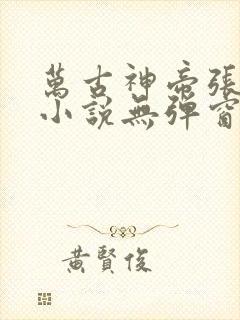 萬古神帝張
小說無彈窗
黃賢俊